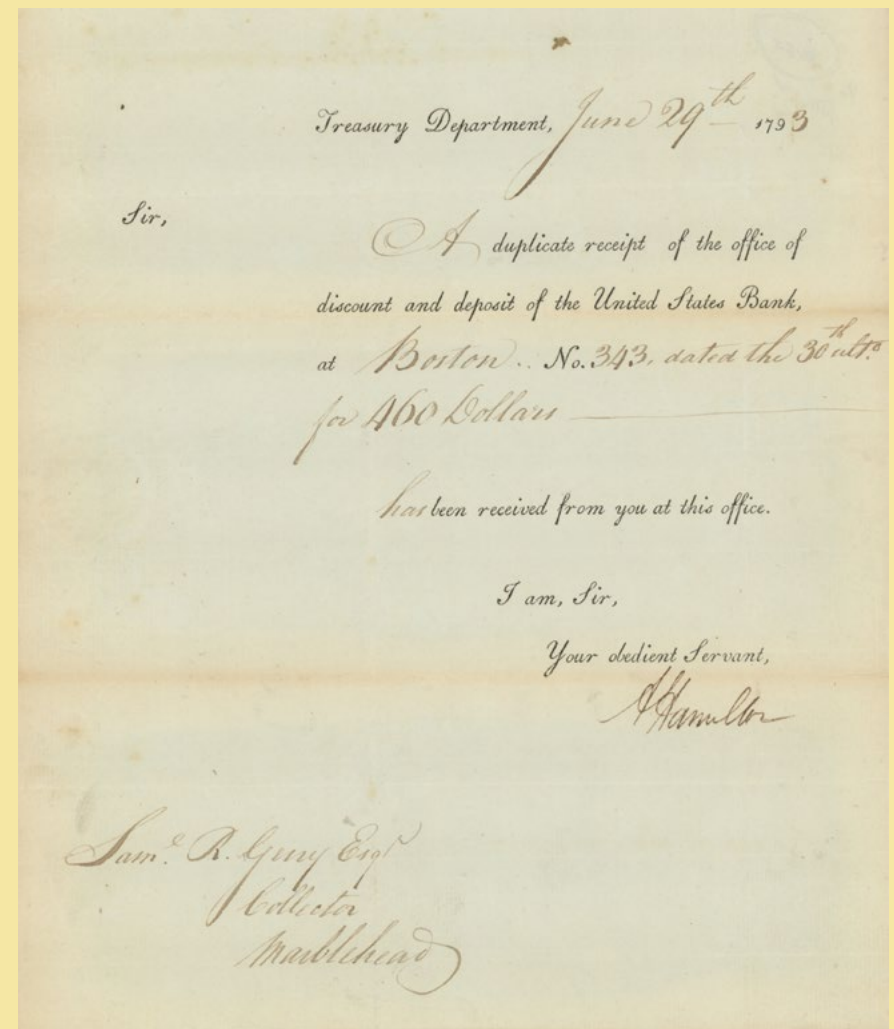 Treasury Department, June 29th 1793
Sir,
A duplicate receipt of the office of
discount and deposit of the United States Bank,
at Boston.. No. 343, dated the 30th ulto.
for 460 Dollars
has been received from you at this office.
I am, Sir,
Your obedient Servant,
A Hamilton
Saml. R. Gerry Esqr
Collector
Marblehead